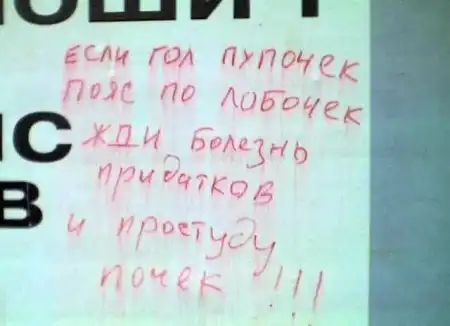 ЕСЛИ ГОЛ ПУПОЧЕК
ПОЯС ПО ЛОБОЧЕК
ЖДИ БОЛЕЗНЬ
ПРИДАТКОВ
И ПРОСТУДУ
ПОЧЕК !!!
ИС
В